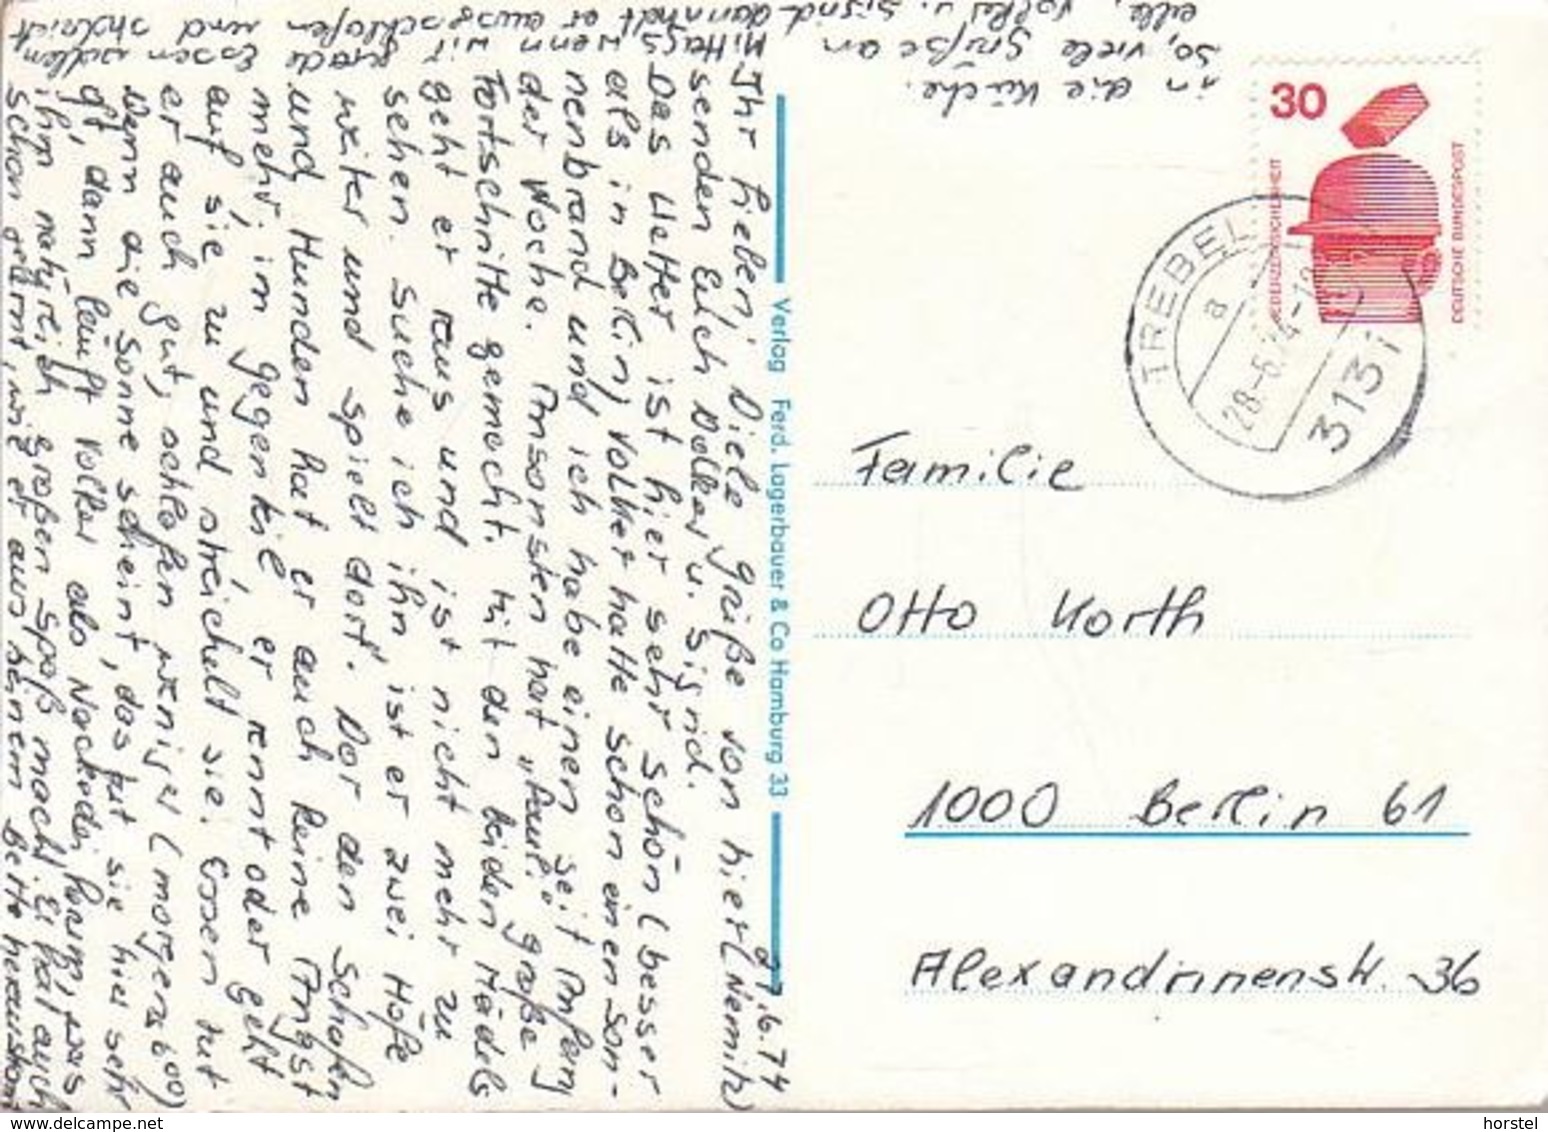 27.6.74
Ihr Lieben! Viele Grüße von hier (Nemitz)
senden Euch Volker u. Sigrid.
Das Wetter ist hier sehr schön (besser
als in Berlin) Volker hatte schon einen Son-
nenbrand und ich habe einen seit Anfang
der Woche. Ansonsten hat „Paul" große
Fortschritte gemacht. Mit den beiden Mädels
geht er raus und ist nicht mehr zu
sehen. Suche ich ihn ist er zwei Höfe
weiter und spielt dort. Vor den Schafen
und Hunden hat er auch keine Angst
mehr, im Gegenteil er rennt oder geht
auf sie zu und streichelt sie. Essen tut
er auch gut, schlafen weniger (morgens 6 00)
Wenn die Sonne scheint, das tut sie hier sehr
oft, dann läuft Volker als Nackedei herum, was
ihm natürlich großen Spaß macht. Er hat auch
schon gelernt, wie er aus seinem Bette herauskommt
Mittags wenn wir grade Essen wollen
und er ausgeschlafen
in die Küche.
So, viele Grüße an
alle, Volker u. Sigrid
Verlag Ferd. Lagerbauer & Co Hamburg 33
30
JEDERZEIT SICHERHEIT
DEUTSCHE BUNDESPOST
TREBEL
a
28.-6.74-12
3131
Familie
Otto Korth
1000 Berlin 61
Alexandrinenstr. 36
© horstel
www.delcampe.net